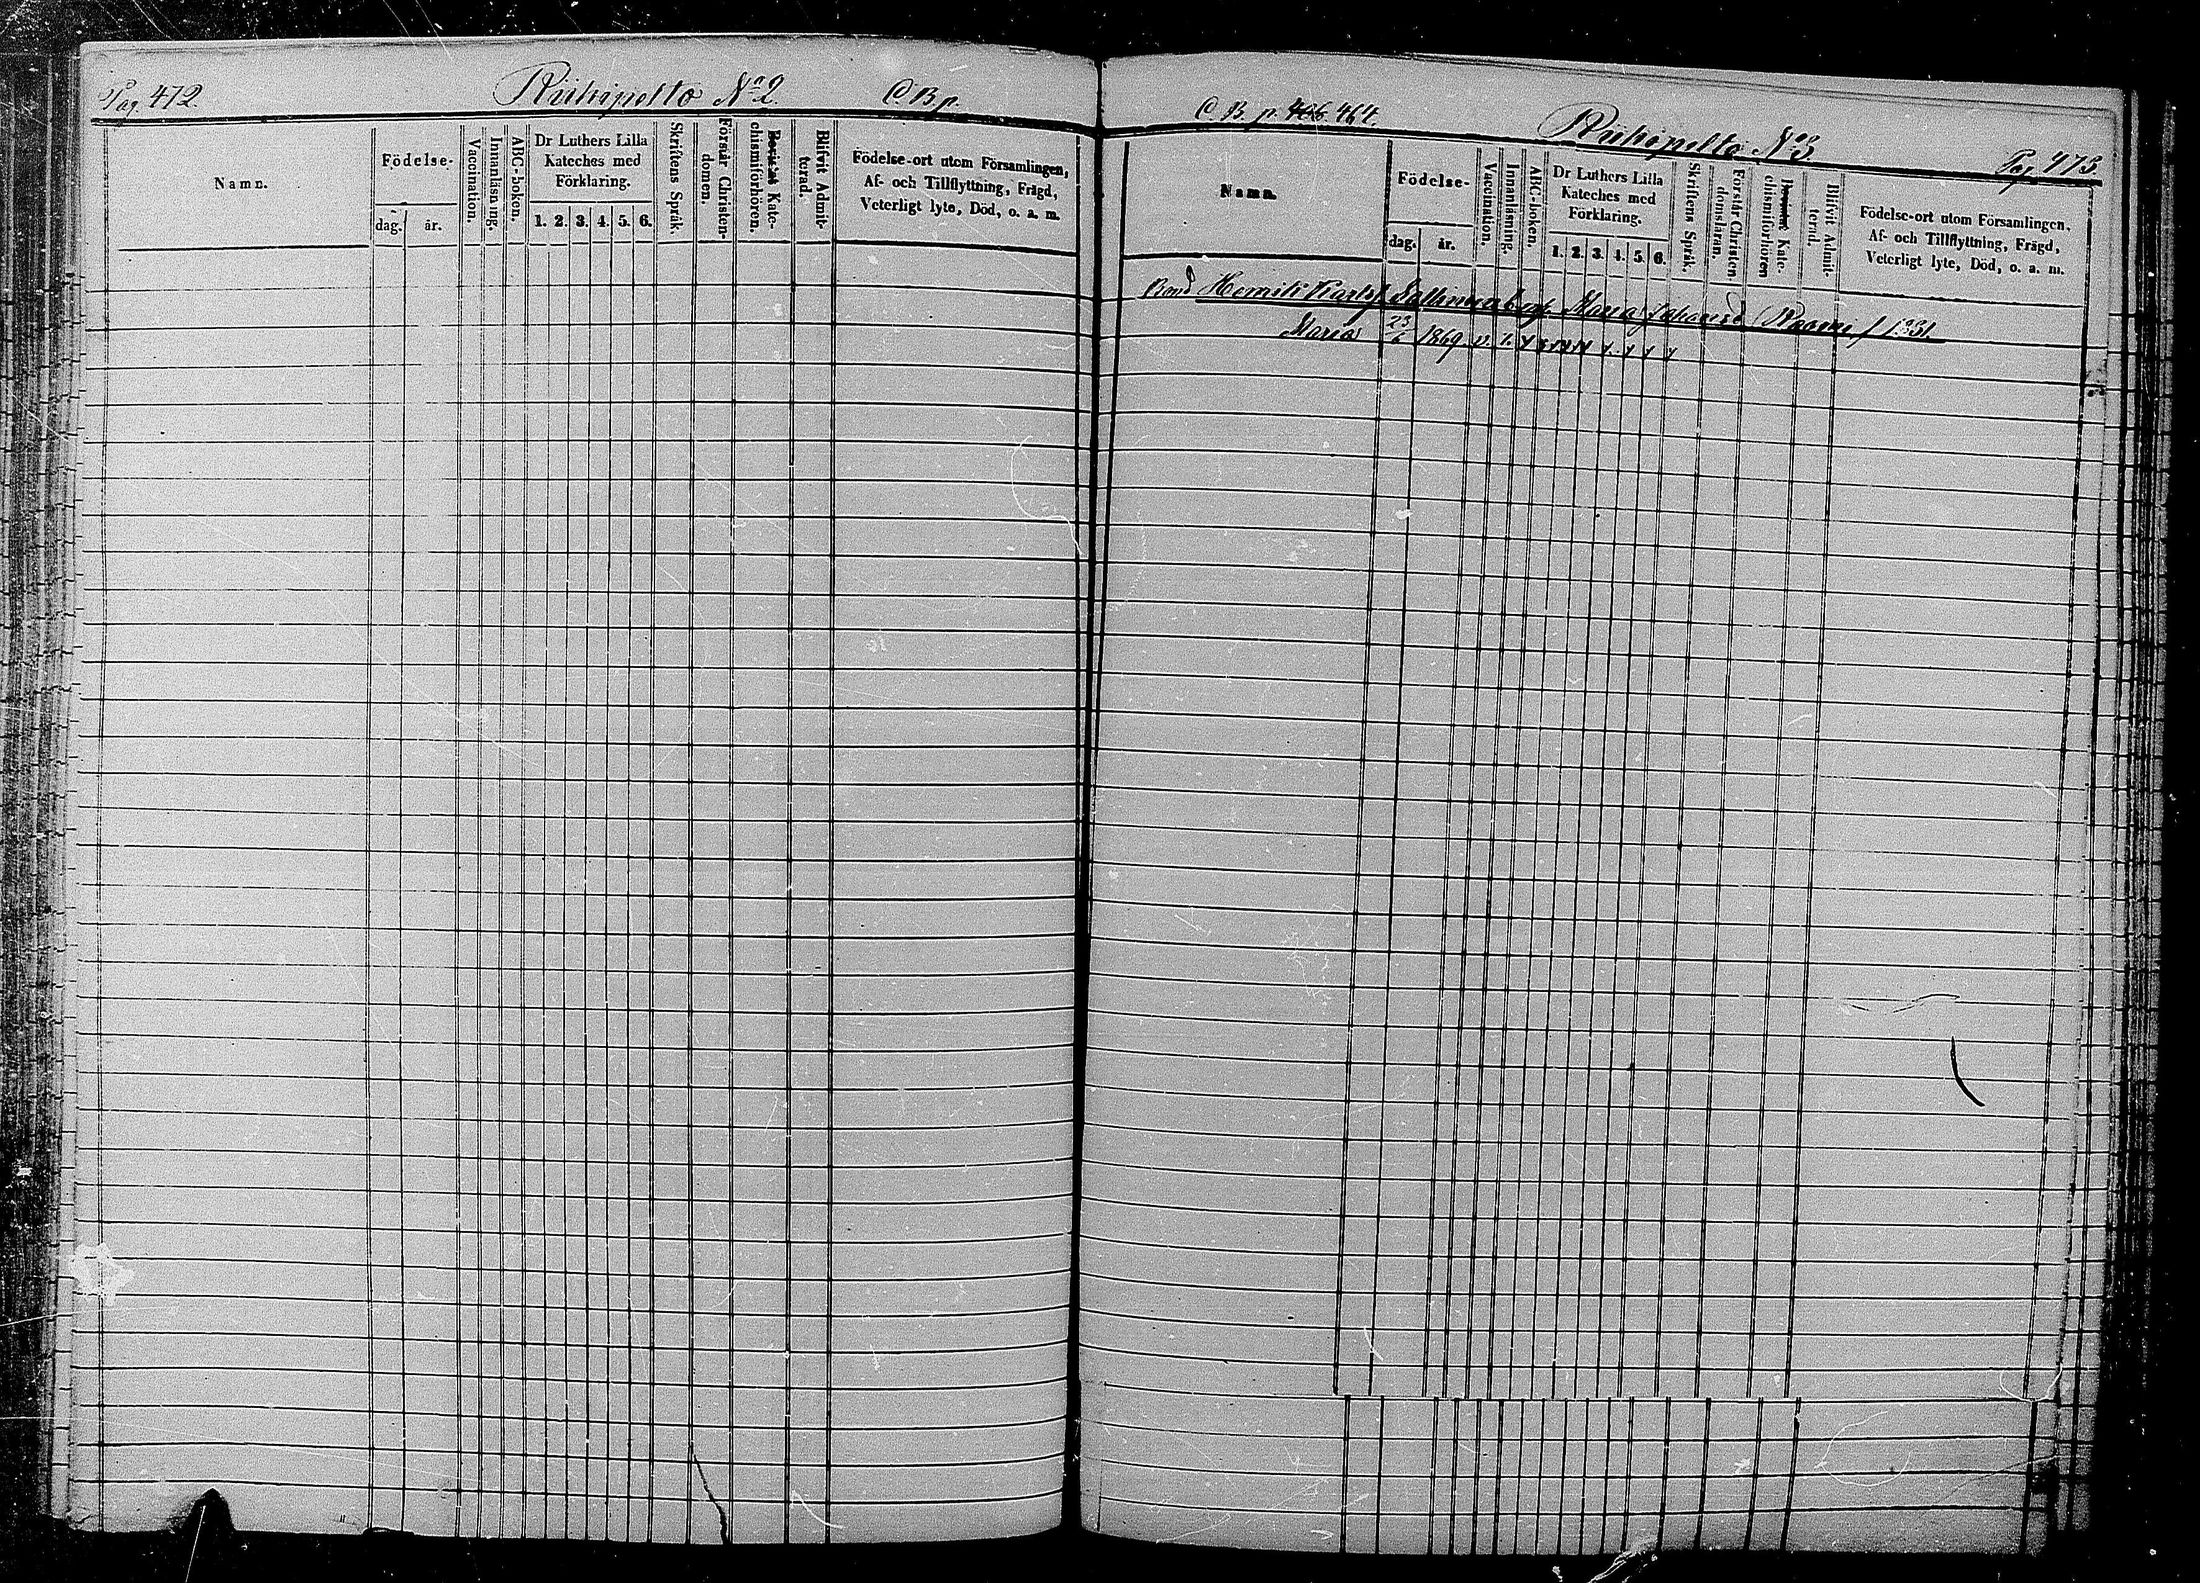 Pag. 472. Riihipelto No 2. C. B. p.
Namn.
Födelse-
dag. år.
Vaccination.
Innanläsning.
ABC-boken.
Dr Luthers Lilla
Kateches med
Förklaring.
1. 2. 3. 4. 5. 6.
Skriftens Språk.
Förstår Christen-
domen.
Bevistat Kate-
chismiförhören.
Blifvit Admit-
terad.
Födelse-ort utom Församlingen,
Af- och Tillflyttning, Frägd,
Veterligt lyte, Död, o. a. m.
C. B. p. 406. 464. Riihipelto No 3. Pag. 473.
Namn.
Födelse-
dag. år.
Vaccination.
Innanläsning.
ABC-boken.
Dr Luthers Lilla
Kateches med
Förklaring.
1. 2. 3. 4. 5. 6.
Skriftens Språk.
Förstår Christen-
domsläran.
Bevistat Kate-
chismiförhören
Blifvit Admit-
terad.
Födelse-ort utom Församlingen.
Af- och Tillflyttning, Frägd,
Veterligt lyte, Död, o. a. m.
Bond Maria
Maria 23/6 1869 v.